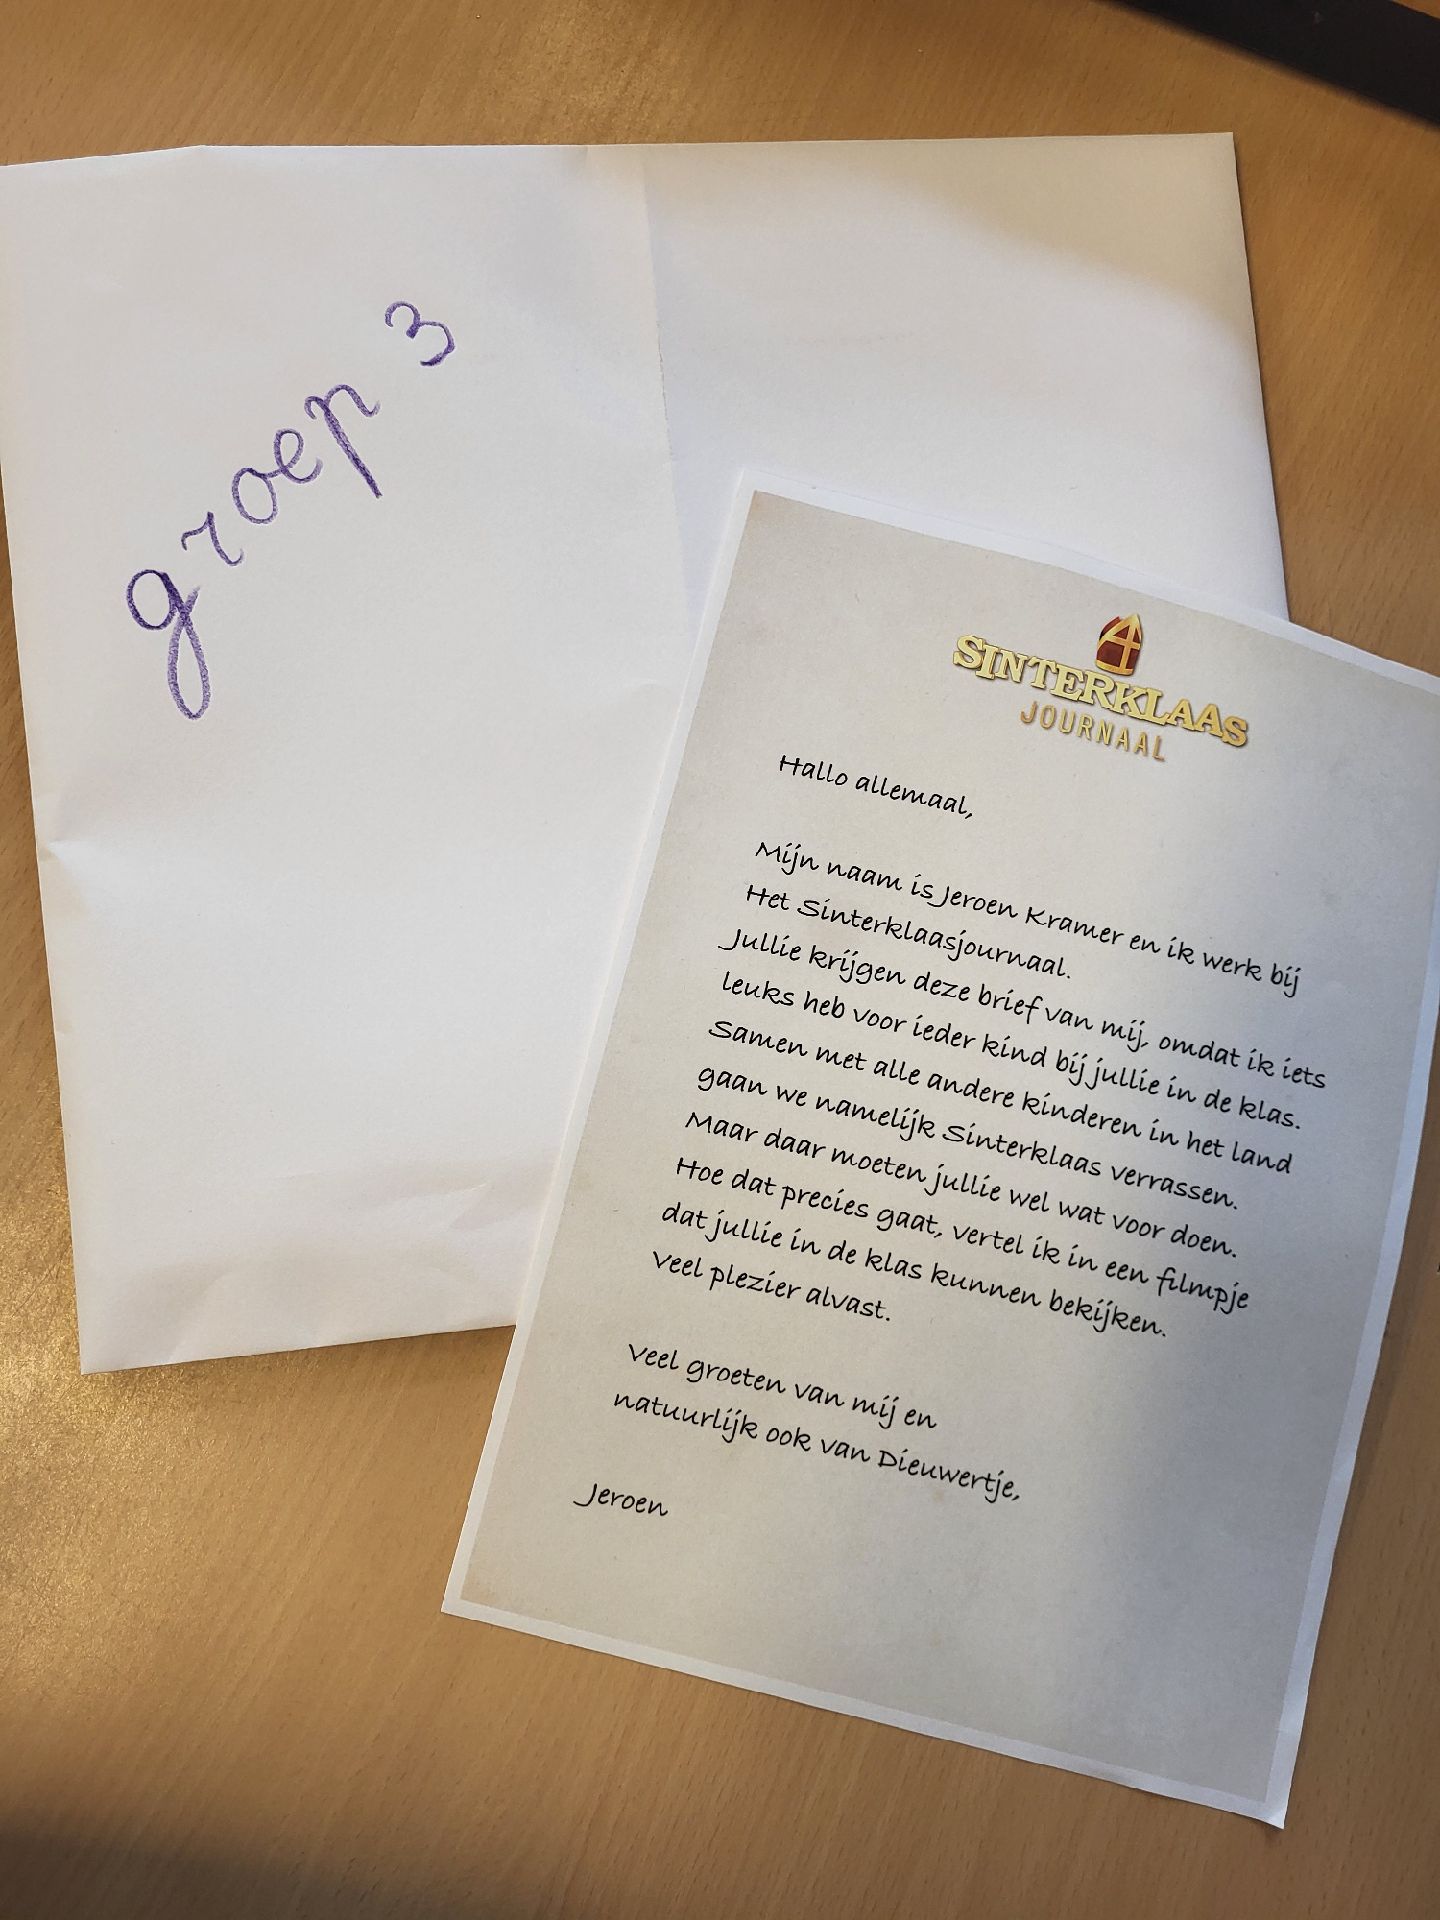 groep 3
SINTERKLAAS
JOURNAAL
Hallo allemaal,
Mijn naam is Jeroen Kramer en ik werk bij
Het Sinterklaasjournaal.
Jullie krijgen deze brief van mij, omdat ik iets
leuks heb voor ieder kind bij jullie in de klas.
Samen met alle andere kinderen in het land
gaan we namelijk Sinterklaas verrassen.
Maar daar moeten jullie wel wat voor doen.
Hoe dat precies gaat, vertel ik in een filmpje
dat jullie in de klas kunnen bekijken.
Veel plezier alvast.
Veel groeten van mij en
natuurlijk ook van Dieuwertje,
Jeroen